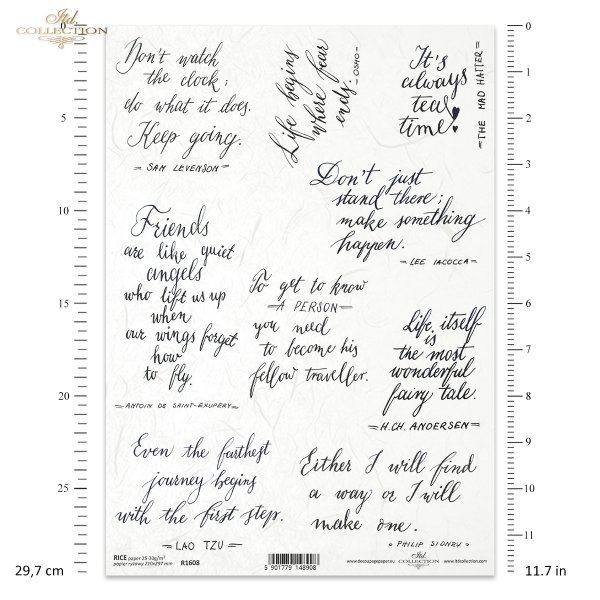 Itd.
COLLECTION
Don't watch
the clock;
do what it does.
Keep going.
= SAM LEVENSON =
Life begins
where fear
ends.
- OSHO -
It's
always
tea
time!
= THE MAD HATTER =
Don't just
stand there;
make something
happen.
= LEE IACOCCA =
Friends
are like quiet
angels
who lift us up
when
our wings forget
how
to fly.
= ANTOIN DE SAINT-EXUPERY =
To get to know
= A PERSON =
you need
to become his
fellow traveller.
Life itself
is
the most
wonderful
fairy tale.
= H.CH. ANDERSEN =
Even the farthest
journey begins
with the first step.
= LAO TZU =
Either I will find
a way or I will
make one.
- PHILIP SIDNEY -
RICE paper 25-30g/m²
papier ryżowy 210x297 mm
R1608
5 901779 148908
www.decoupagepaper.eu
Itd.
COLLECTION
www.itdcollection.com
0
5
10
15
20
25
29,7 cm
0
1
2
3
4
5
6
7
8
9
10
11
11.7 in